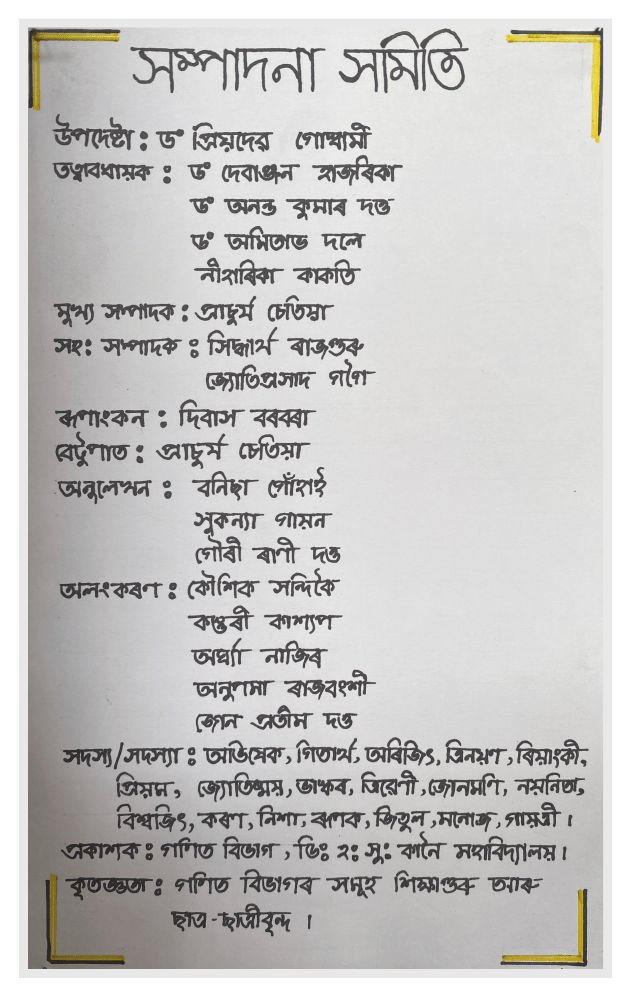 সম্পাদনা সমিতি
উপদেষ্টা : ড° প্ৰিয়দেৱ গোস্বামী
তত্বাবধায়ক : ড° দেবাঞ্জন হাজৰিকা
ড° অনন্ত কুমাৰ দত্ত
ড° অমিতাভ দলে
নীহাৰিকা কাকতি
মুখ্য সম্পাদক : প্ৰাচুৰ্য চেতিয়া
সহঃ সম্পাদক : সিদ্ধাৰ্থ ৰাজগুৰু
জ্যোতিপ্ৰসাদ গগৈ
ৰূপাংকন : দিবাস বৰবৰা
বেটুপাত : প্ৰাচুৰ্য চেতিয়া
অনুলেখন : বনিছা গোঁহাই
সুকন্যা গায়ন
গৌৰী ৰাণী দত্ত
অলংকৰণ : কৌশিক সন্দিকৈ
কস্তুৰী কাশ্যপ
অৰ্ঘ্যা নাজিৰ
অনুপমা ৰাজবংশী
জোন প্ৰতীম দত্ত
সদস্য/সদস্যা : অভিষেক, গিতাৰ্থ, অৰিজিৎ, ত্ৰিনয়ণ, ৰিয়াংকী,
প্ৰিয়ম, জ্যোতিষ্ময়, ভাস্কৰ, ত্ৰিৱেণী, জোনমণি, নয়নিতা,
বিশ্বজিৎ, কৰণ, নিশা, ৰূপক, জিতুল, মনোজ, গায়ত্ৰী ।
প্ৰকাশক : গণিত বিভাগ, ডিঃ হঃ সুঃ কানৈ মহাবিদ্যালয় ।
কৃতজ্ঞতা : গণিত বিভাগৰ সমূহ শিক্ষাগুৰু আৰু
ছাত্ৰ-ছাত্ৰীবৃন্দ ।